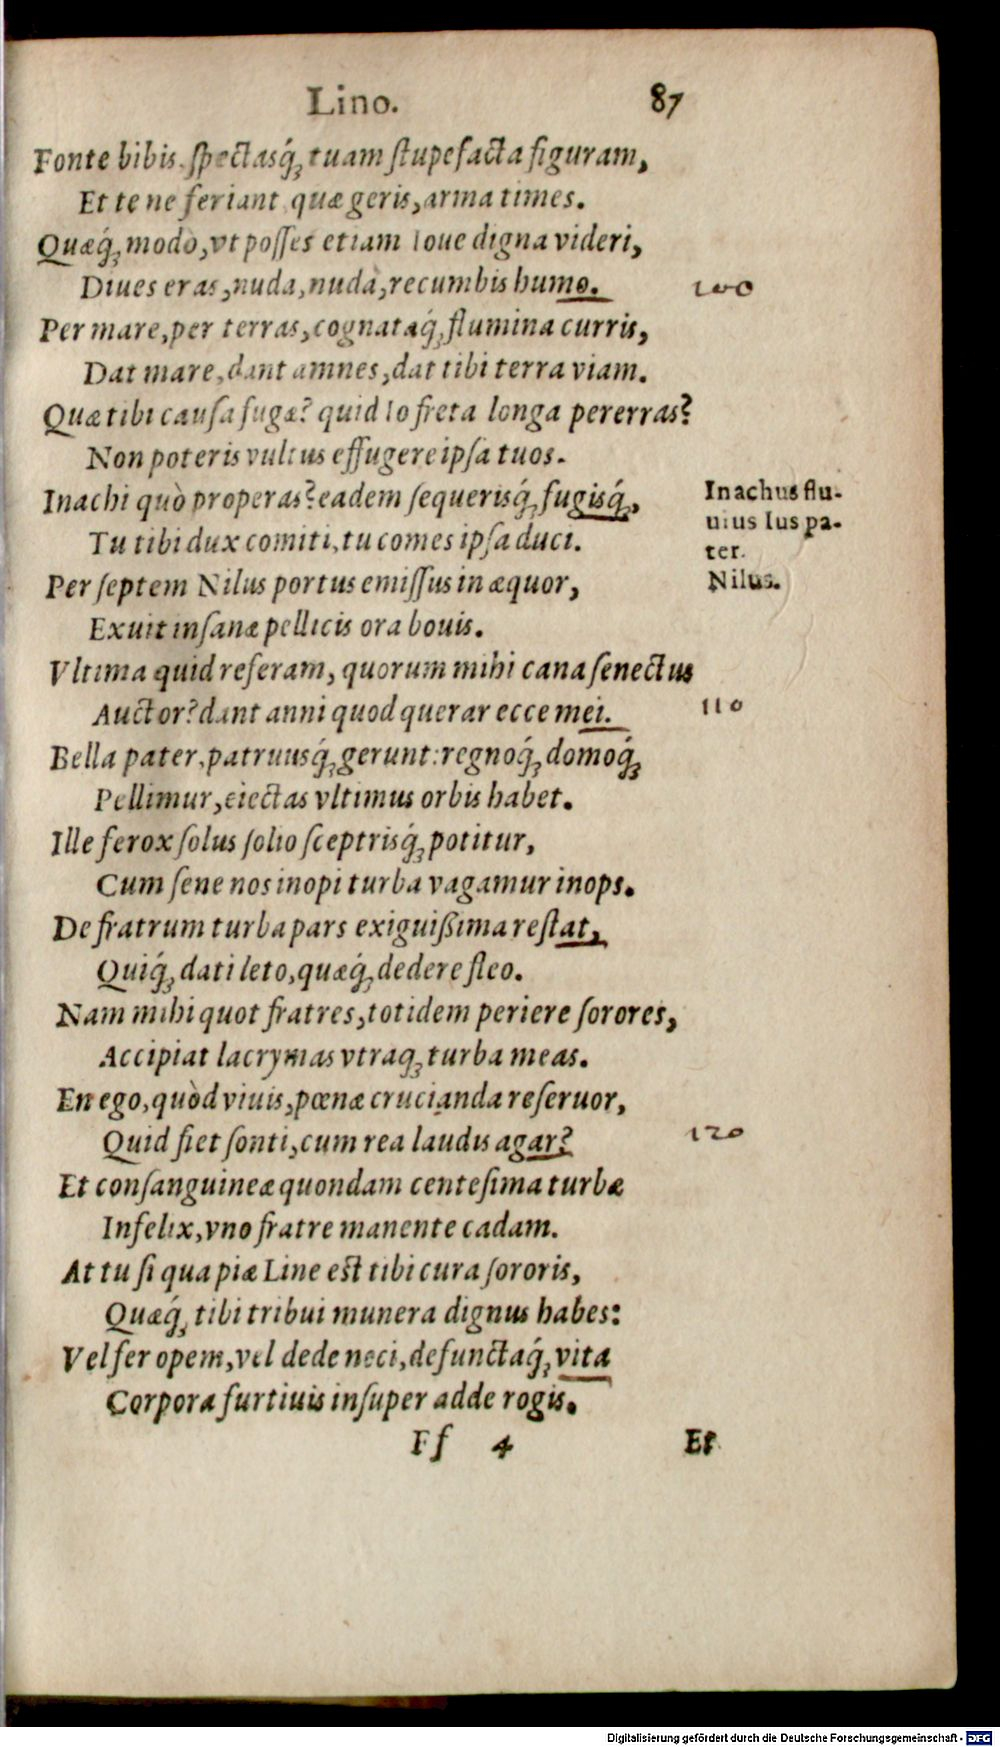 Lino. 87
Fonte bibis. spectasq́ꝫ tuam ſtupefacta figuram,
Et te ne feriant quæ geris, arma times.
Quæq́ꝫ modo, vt poſſes etiam Ioue digna videri,
Diues eras, nuda, nudà, recumbis humo. 100
Per mare, per terras, cognataq́ꝫ flumina curris,
Dat mare, dant amnes, dat tibi terra viam.
Quæ tibi cauſa fugæ? quid Io freta longa pererras?
Non poteris vultus effugere ipſa tuos.
Inachi quò properas? eadem ſequerisq́ꝫ fugisq́ꝫ,
Tu tibi dux comiti, tu comes ipſa duci.
Per ſeptem Nilus portus emiſſus in æquor,
Exuit inſanæ pellicis ora bouis.
Vltima quid referam, quorum mihi cana ſenectus
Auctor? dant anni quod querar ecce mei. 110
Bella pater, patruusq́ꝫ gerunt: regnoq́ꝫ domoq́ꝫ
Pellimur, eiectas vltimus orbis habet.
Ille ferox ſolus ſolio ſceptrisq́ꝫ potitur,
Cum ſene nos inopi turba vagamur inops.
De fratrum turba pars exiguißima reſtat,
Quiq́ꝫ dati leto, quæq́ꝫ dedere fleo.
Nam mihi quot fratres, totidem periere ſorores,
Accipiat lacrymas vtraqꝫ turba meas.
En ego, quòd viuis, pœnæ crucianda reſeruor,
Quid fiet ſonti, cum rea laudis agar? 120
Et conſanguineæ quondam centeſima turbæ
Infelix, vno fratre manente cadam.
At tu ſi qua piæ Line eſt tibi cura ſororis,
Quæq́ꝫ tibi tribui munera dignus habes:
Vel fer opem, vel dede neci, defunctaq́ꝫ vita
Corpora furtiuis inſuper adde rogis.
Ff 4 Et
Inachus flu-
uius Ius pa-
ter.
Nilus.
Digitalisierung gefördert durch die Deutsche Forschungsgemeinschaft - DFG